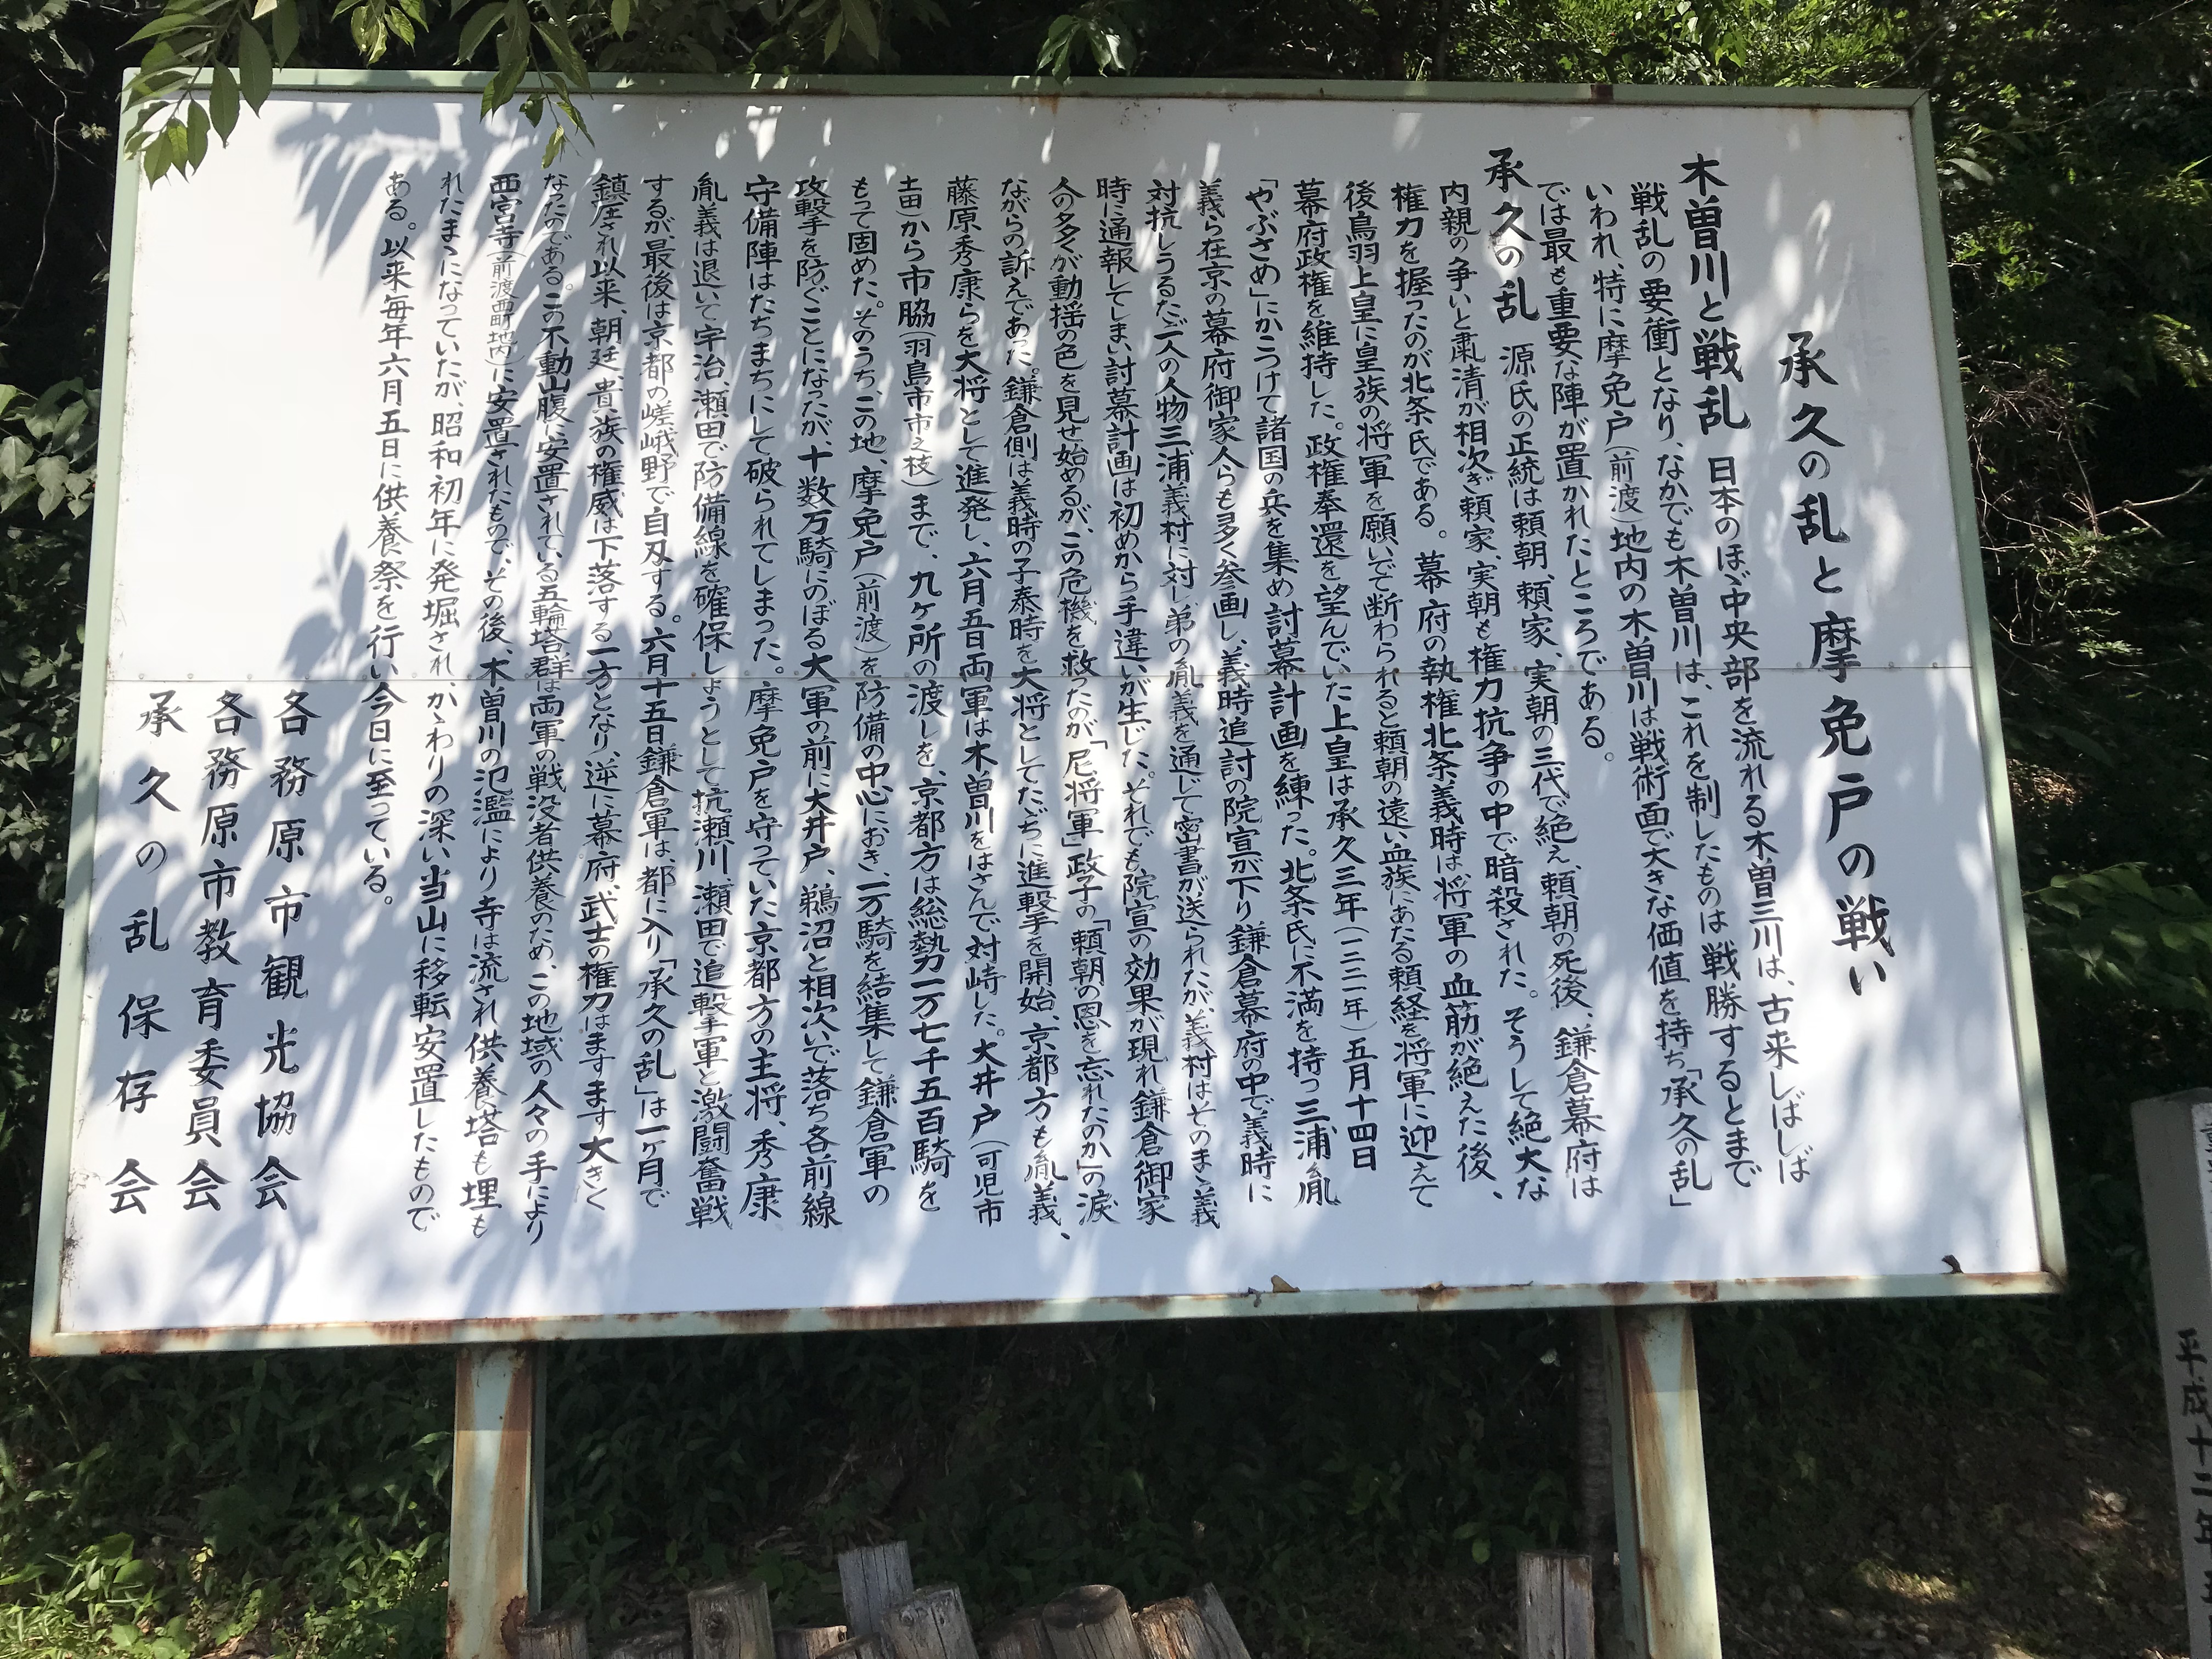 承久の乱と摩免戸の戦い
木曽川と戦乱 日本のほゞ中央部を流れる木曽三川は、古来しばしば
戦乱の要衝となり、なかでも木曽川は、これを制したものは戦勝するとまで
いわれ、特に摩免戸(前渡)地内の木曽川は戦術面で大きな価値を持ち「承久の乱」
では最も重要な陣が置かれたところである。
承久の乱 源氏の正統は頼朝、頼家、実朝の三代で絶え、頼朝の死後、鎌倉幕府は
内親の争いと粛清が相次ぎ頼家、実朝も権力抗争の中で暗殺された。そうして絶大な
権力を握ったのが北条氏である。幕府の執権北条義時は将軍の血筋が絶えた後、
後鳥羽上皇に皇族の将軍を願いでて断わられると頼朝の遠い血族にあたる頼経を将軍に迎えて
幕府政権を維持した。政権奉還を望んでいた上皇は承久三年(一二二一年)五月十四日
「やぶさめ」にかこつけて諸国の兵を集め討幕計画を練った。北条氏に不満を持つ三浦胤
義ら在京の幕府御家人らも多く参画し、義時追討の院宣が下り鎌倉幕府の中で義時に
対抗しうるたゞ一人の人物三浦義村に対し弟の胤義を通じて密書が送られたが、義村はそのまゝ義
時に通報してしまい討幕計画は初めから手違いが生じた。それでも院宣の効果が現れ鎌倉御家
人の多くが動揺の色を見せ始めるが、この危機を救ったのが「尼将軍」政子の「頼朝の恩を忘れたのか」の涙
ながらの訴えであった。鎌倉側は義時の子泰時を大将としてたゞちに進撃を開始、京都方も胤義、
藤原秀康らを大将として進発し、六月五日両軍は木曽川をはさんで対峙した。大井戸(可児市
土田)から市脇(羽島市市之枝)まで、九ヶ所の渡しを、京都方は総勢一万七千五百騎を
もって固めた。そのうち、この地、摩免戸(前渡)を防備の中心におき、一万騎を結集して鎌倉軍の
攻撃を防ぐことになったが、十数万騎にのぼる大軍の前に大井戸、鵜沼と相次いで落ち各前線
守備陣はたちまちにして破られてしまった。摩免戸を守っていた京都方の主将、秀康
胤義は退いて宇治、瀬田で防備線を確保しようとして杭瀬川、瀬田で追撃軍と激闘奮戦
するが、最後は京都の嵯峨野で自刃する。六月十五日鎌倉軍は、都に入り「承久の乱」は一ヶ月で
鎮圧され以来、朝廷、貴族の権威は下落する一方となり、逆に幕府、武士の権力はますます大きく
なったのである。この不動山腹に安置されている五輪塔群は両軍の戦没者供養のため、この地域の人々の手により
西宮寺(前渡西町地内)に安置されたもので、その後、木曽川の氾濫により寺は流され供養塔も埋も
れたまゝになっていたが、昭和初年に発掘され、かゝわりの深い当山に移転安置したもので
ある。以来毎年六月五日に供養祭を行い今日に至っている。
各務原市観光協会
各務原市教育委員会
承久の乱保存会
平成十二年